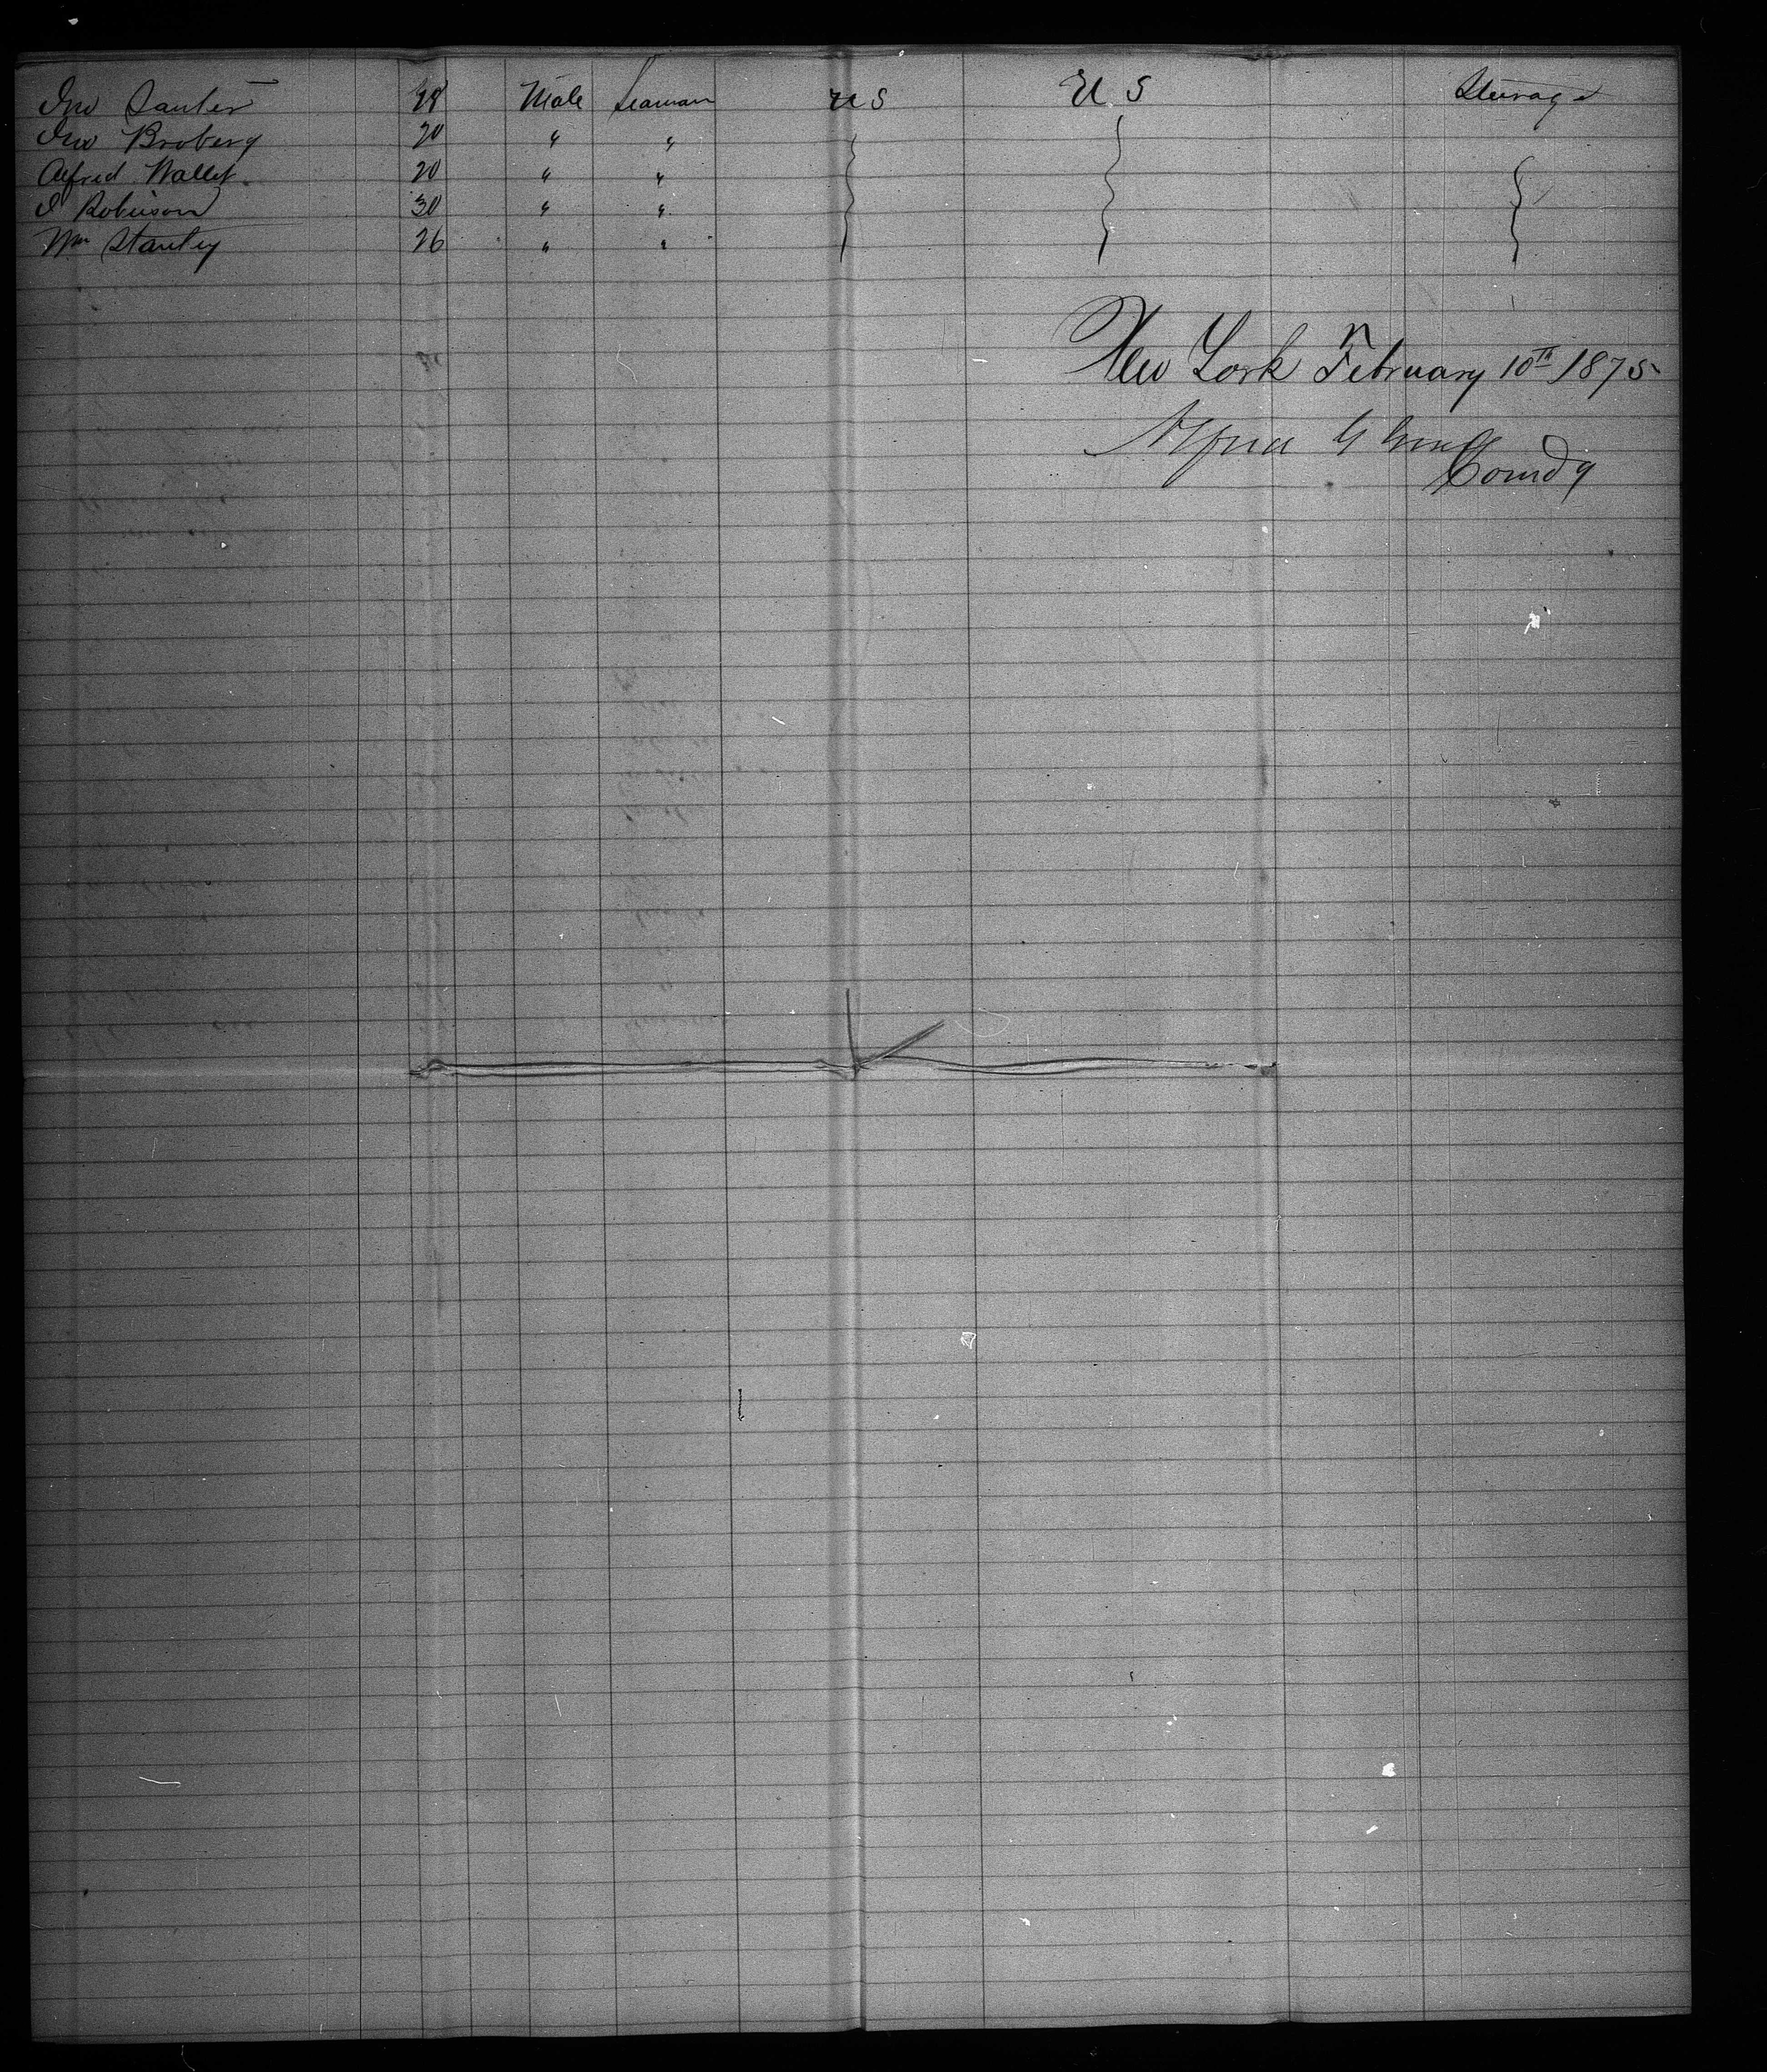 Jno Sauter 28 Male Seaman U S U S Steerage
Jno Broberg 20 " "
Alfred Wallet 20 " "
J Robinson 30 " "
Wm Stanley 26 " "
New York February 10th 1875
Comdg